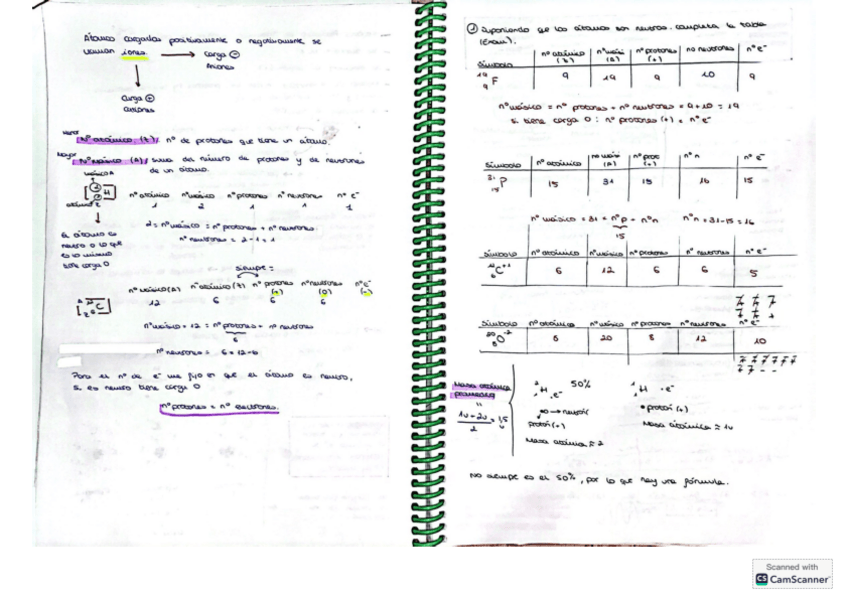 Átomos cargados positivamente o negativamente se
llaman iones. → Carga ⊖
Aniones
Carga ⊕
cationes
Nº atómico (Z): nº de protones que tiene un átomo.
Nº Másico (A): suma del número de protones y de neutrones
de un átomo.
másico A
H nº atómico nº másico nº protones nº neutrones nº e⁻
1 2 1 1
2 = nº másico = nº protones + nº neutrones
nº neutrones = 2-1 = 1
El átomo es
neutro o lo que
es lo mismo
tiene carga 0
siempre =
nº másico (A) nº atómico (Z) nº protones (+) nº neutrones (0) nº e⁻ (-)
C 12 6 6 6
nº másico = 12 = nº protones + nº neutrones
6
nº neutrones = 6 = 12-6
Para el nº de e⁻ me fijo en que el átomo es neutro,
si es neutro tiene carga 0
nº protones = nº electrones.
① Suponiendo que los átomos son neutros. completa la tabla
(Exam).
Símbolo nº atómico (Z) nº másic (A) nº protones (+) no neutrones nº e⁻
19 9 F 9 19 9 10 9
nº másico = nº protones + nº neutrones = 9+10 = 19
si tiene carga 0: nº protones (+) = nº e⁻
Símbolo nº atómico no másic (A) nº prot (+) nº n nº e⁻
31 15 P 15 31 15 16 15
nº másico = 31 = nº p + nº n nº n = 31-15 = 16
15
Símbolo nº atómico nº másico nº protones nº neutrones nº e⁻
12 6 C⁺¹ 6 12 6 6 5
7 7 7
Símbolo nº atómico nº másico nº protones nº neutrones nº e⁻
20 8 O⁻² 8 20 8 12 10
7 7 7 7 7 7
Masa atómica
promedio
=
1u + 2u / 2 = 1,5 u
H e⁻ 50%
→ neutrón
protón (+)
Masa atómica ≈ 2
H · e⁻
• protón (+)
Masa atómica ≈ 1u
No siempre es el 50%, por lo que hay una fórmula.
Scanned with
CS CamScanner